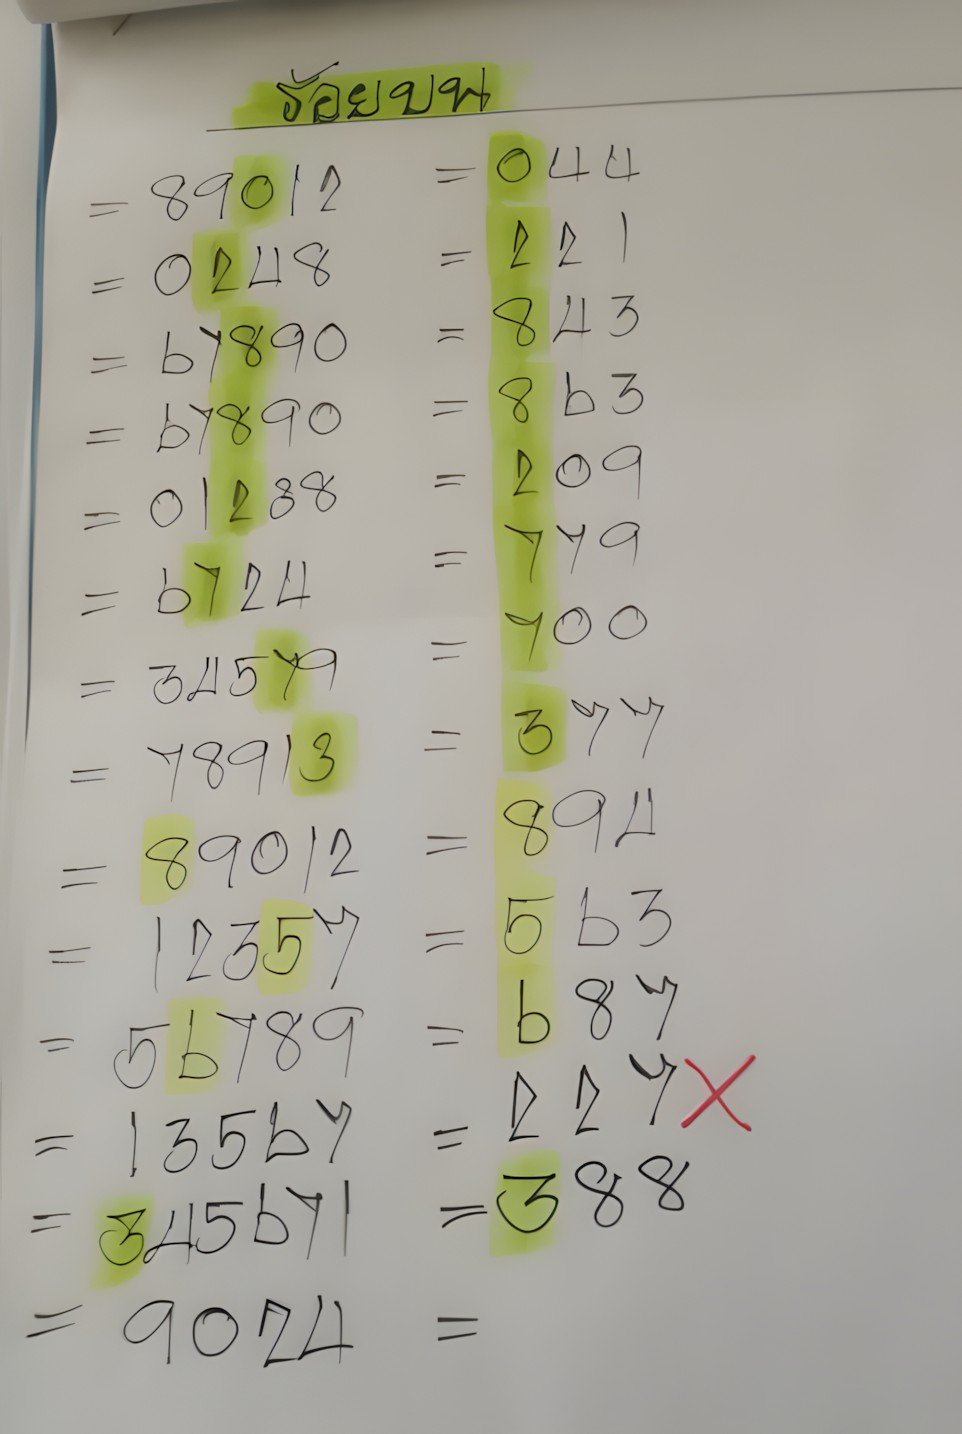 ร้อยบน
= 89012 = 044
= 0248 = 221
= 67890 = 843
= 67890 = 863
= 01238 = 209
= 6724 = 779
= 34579 = 700
= 78913 = 377
= 89012 = 894
= 12357 = 563
= 56789 = 687
= 13567 = 227 X
= 345671 = 388
= 9024 =